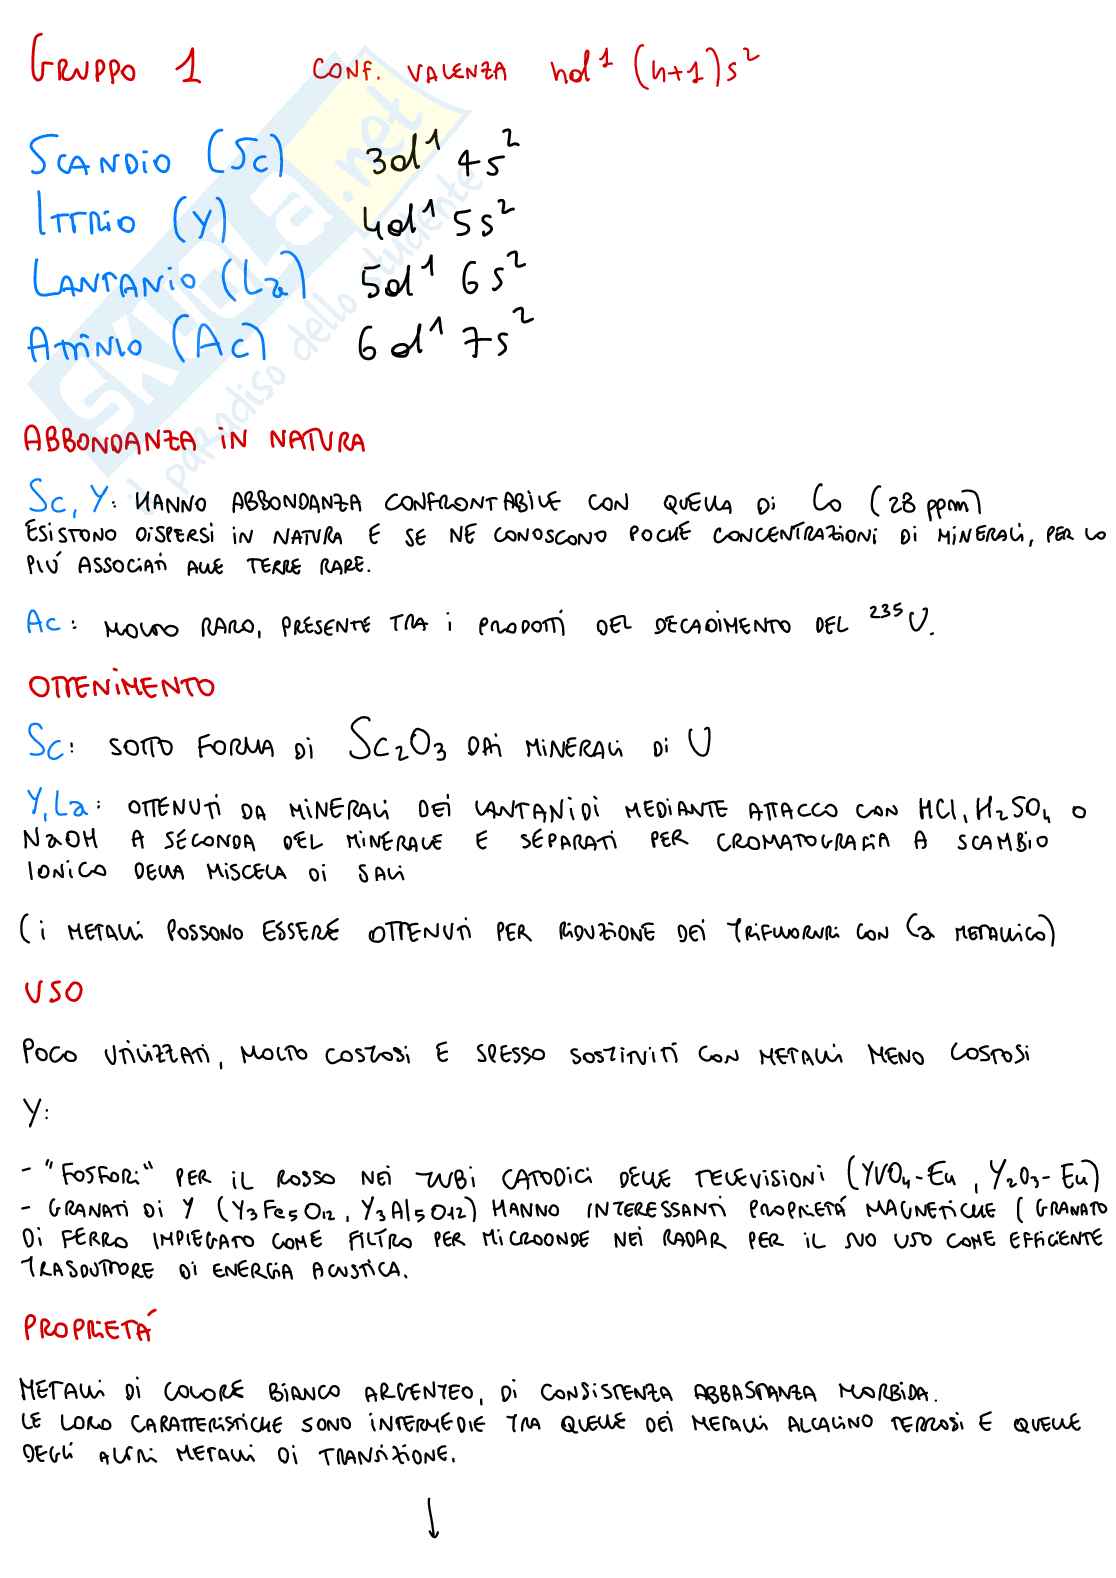 GRUPPO 1 CONF. VALENZA nd¹ (n+1)s²
SCANDIO (Sc) 3d¹ 4s²
ITTRIO (Y) 4d¹ 5s²
LANTANIO (La) 5d¹ 6s²
ATTINIO (Ac) 6d¹ 7s²
SKUOLA.net
il paradiso dello studente
ABBONDANZA IN NATURA
Sc, Y: HANNO ABBONDANZA CONFRONTABILE CON QUELLA DI Co (28 ppm)
ESISTONO DISPERSI IN NATURA E SE NE CONOSCONO POCHE CONCENTRAZIONI DI MINERALI, PER LO
PIÚ ASSOCIATI ALLE TERRE RARE.
Ac: MOLTO RARO, PRESENTE TRA I PRODOTTI DEL DECADIMENTO DEL ²³⁵U.
OTTENIMENTO
Sc: SOTTO FORMA DI Sc₂O₃ DAI MINERALI DI U
Y, La: OTTENUTI DA MINERALI DEI LANTANIDI MEDIANTE ATTACCO CON HCl, H₂SO₄ O
NaOH A SECONDA DEL MINERALE E SEPARATI PER CROMATOGRAFIA A SCAMBIO
IONICO DELLA MISCELA DI SALI
(I METALLI POSSONO ESSERE OTTENUTI PER RIDUZIONE DEI TRIFLUORURI CON Ca METALLICO)
USO
POCO UTILIZZATI, MOLTO COSTOSI E SPESSO SOSTITUITI CON METALLI MENO COSTOSI
Y:
- "FOSFORI" PER IL ROSSO NEI TUBI CATODICI DELLE TELEVISIONI (YVO₄-Eu, Y₂O₃-Eu)
- GRANATI DI Y (Y₃Fe₅O₁₂, Y₃Al₅O₁₂) HANNO INTERESSANTI PROPRIETÁ MAGNETICHE (GRANATO
DI FERRO IMPIEGATO COME FILTRO PER MICROONDE NEI RADAR PER IL SUO USO COME EFFICIENTE
TRASDUTTORE DI ENERGIA ACUSTICA.
PROPRIETÁ
METALLI DI COLORE BIANCO ARGENTEO, DI CONSISTENZA ABBASTANZA MORBIDA.
LE LORO CARATTERISTICHE SONO INTERMEDIE TRA QUELLE DEI METALLI ALCALINO TERROSI E QUELLE
DEGLI ALTRI METALLI DI TRANSIZIONE.
↓